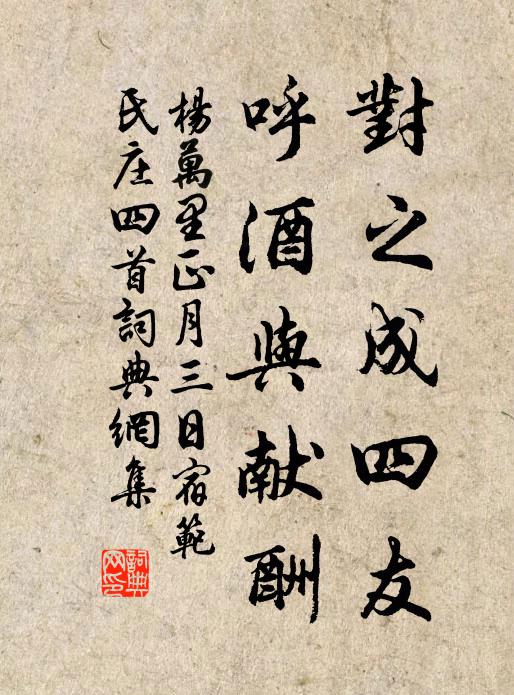 對之成四友
呼酒與献酬
楊萬里正月三日宿範
氏庄四首詞典網集
詞典
网印